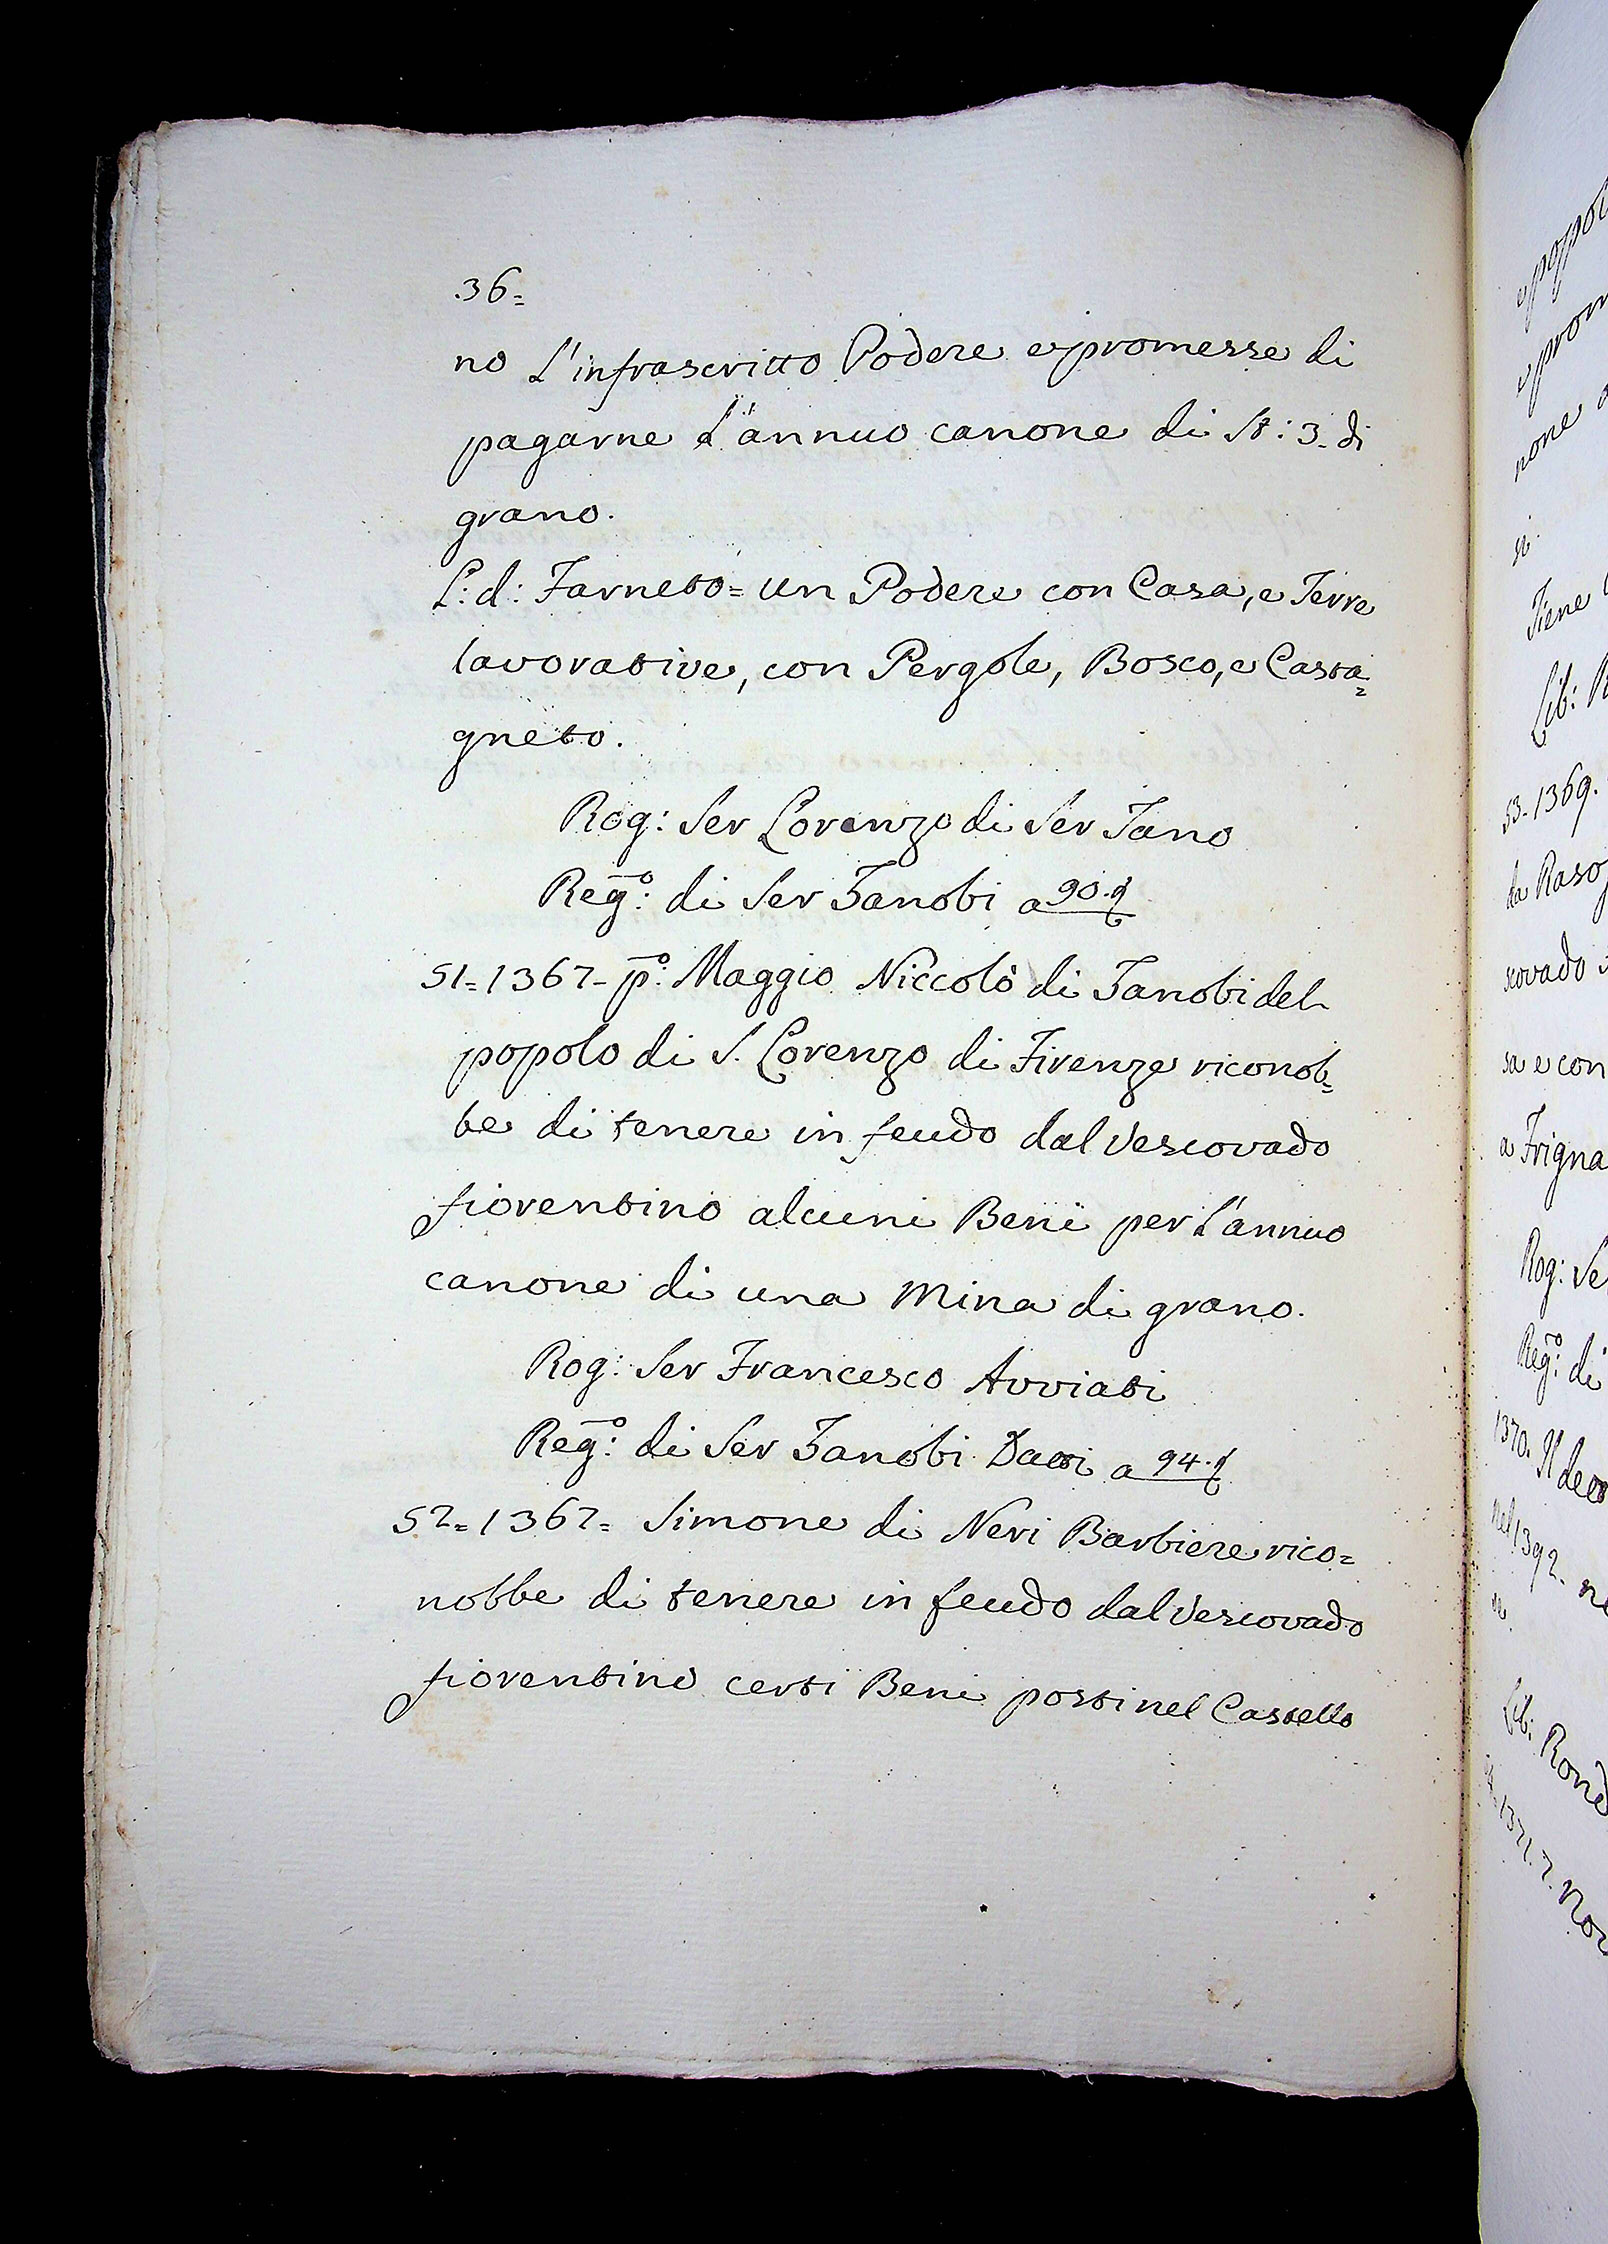 36=
no L'infrascritto Podere e promesse di
pagarne L'annuo canone di St: 3. di
grano.
L: d: Farneto= un Podere con Casa, e Terre
lavorative, con Pergole, Bosco, e Casta=
gneto.
Rog: Ser Lorenzo di Ser Tano
Regº: di Ser Zanobi a 90.
51=1367- pº: Maggio Niccolò di Zanobi del
popolo di S. Lorenzo di Firenze riconob=
be di tenere in feudo dal Vescovado
fiorentino alcuni Beni per L'annuo
canone di una Mina di grano.
Rog: Ser Francesco Avviati
Regº: di Ser Zanobi a 94.
52=1367= Simone di Neri Barbiere rico=
nobbe di tenere in feudo dal Vescovado
fiorentino certi Beni posti nel Castello
popol
prom
none
Tiene
Lib: R
53-1369.
da Raso
scovado
sa e con
a Frigna
Rog: Se
Regº: di
1370. Il
nel 1392. ne
Lib: Rond
1371. 7. Nov